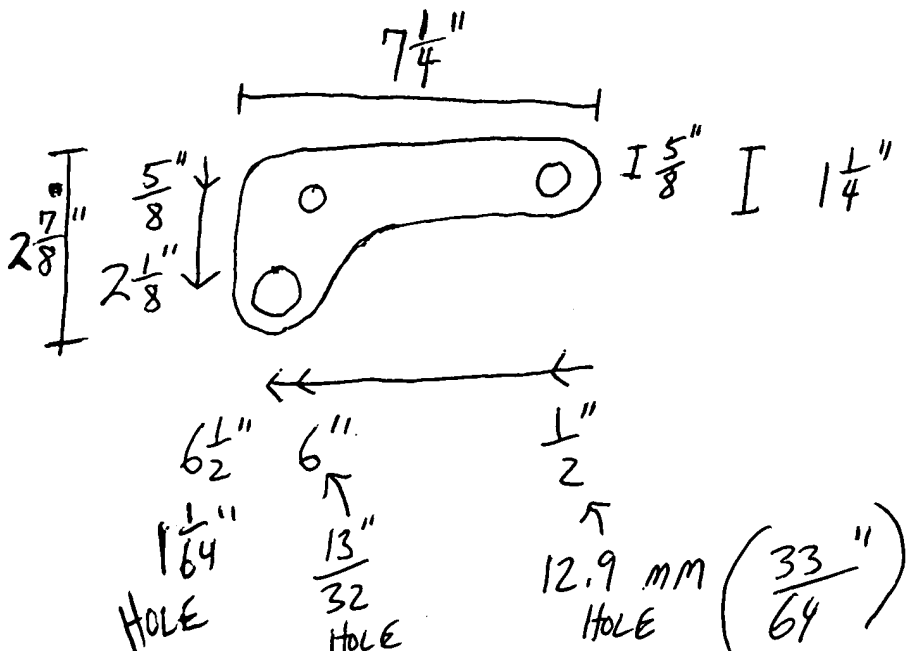 7 1/4"
2 7/8"
5/8"
2 1/8"
5/8"
1 1/4"
6 1/2"
1 1/64"
HOLE
6"
13"/32
HOLE
1/2"
12.9 mm
HOLE
(33"/64)